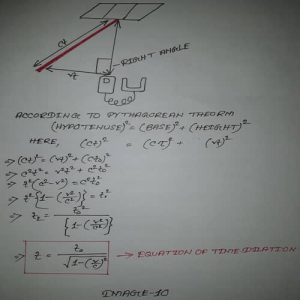 ct
vt
RIGHT ANGLE
ACCORDING TO PYTHAGOREAN THEORM
(HYPOTENUSE)² = (BASE)² + (HEIGHT)²
HERE, (Ct)² = (CT)² + (vt)²
⇒ (Ct)² = (vt)² + (Ct₀)²
⇒ c²t² = v²t² + c²t₀²
⇒ t²(c²-v²) = c²t₀²
⇒ t²{1-(v²/c²)} = t₀²
⇒ t² = t₀²/{1-(v²/c²)}
⇒ t = t₀/√1-(v/c)² → EQUATION OF TIME DILATION
IMAGE-10